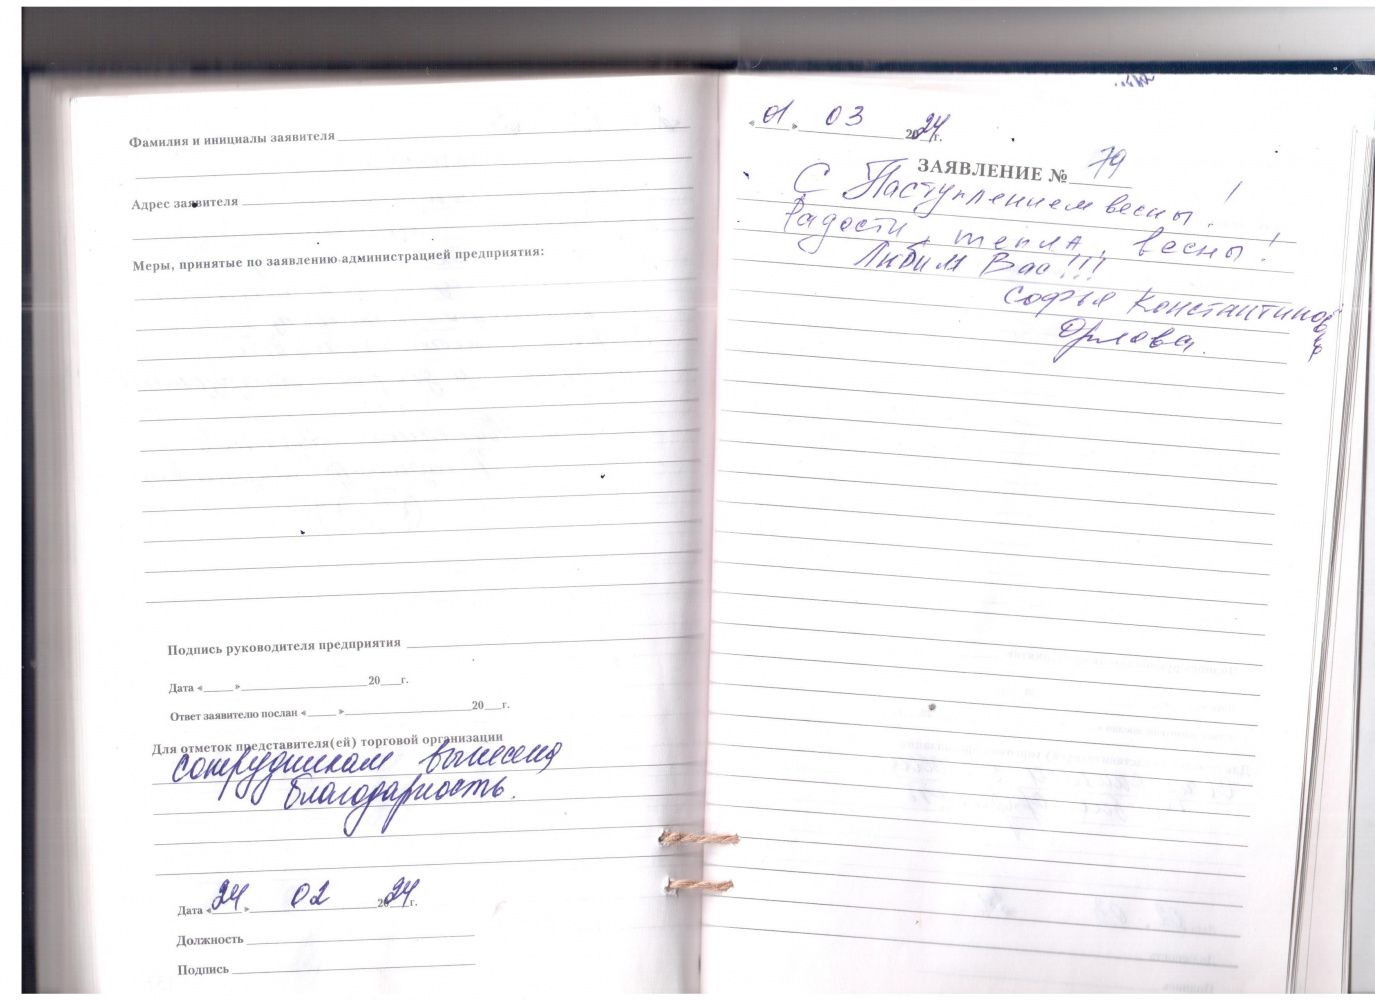 Фамилия и инициалы заявителя
Адрес заявителя
Меры, принятые по заявлению администрацией предприятия:
Подпись руководителя предприятия
Дата « » 20 г.
Ответ заявителю послан « » 20 г.
Для отметок представителя(ей) торговой организации
сотрудникам вынесена
благодарность.
Дата «24» 02 2024г.
Должность
Подпись
«01» 03 2024г.
ЗАЯВЛЕНИЕ № 79
С Наступлением весны!
Радости, тепла, весны!
Любим Вас!!!
Софья Константиновна
Орлова.